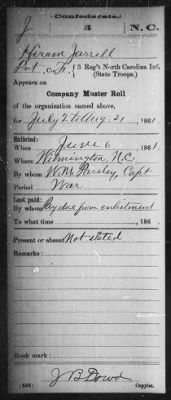 Confederate.
J 3 N.C.
Hiram Jarrell
Pvt, Co. F, 3 Reg't North Carolina Inf.
(State Troops.)
Appears on
Company Muster Roll
of the organization named above,
for July 2 to Aug. 31, 1861.
Enlisted:
When June 6, 1861.
Where Wilmington, N.C.
By whom Wm Parsley, Capt
Period War
Last paid:
By whom Pay due from enlistment
To what time , 186
Present or absent Not stated
Remarks:
Book mark:
J B Dowd
Copyist.